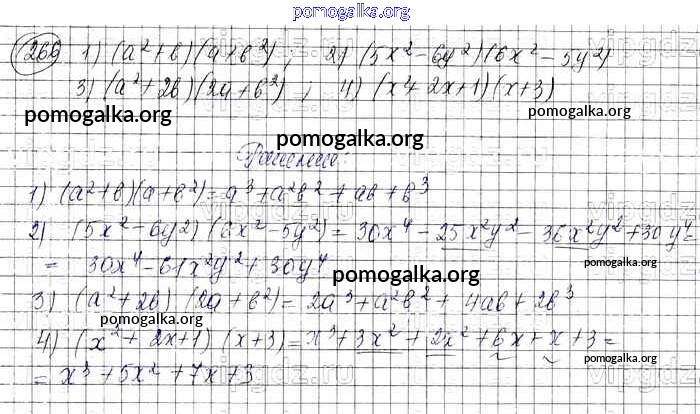 pomogalka.org
266 1) (a²+b)(a+b²) ; 2) (5x²-6y²)(6x²-5y²)
3) (a²+2b)(2a+b²) , 4) (x²+2x+1)(x+3)
pomogalka.org pomogalka.org
pomogalka.org
Решение:
1) (a²+b)(a+b²)=a³+a²b²+ab+b³
pomogalka.org
2) (5x²-6y²)(6x²-5y²)=30x⁴-25x²y²-36x²y²+30y⁴=
= 30x⁴-61x²y²+30y⁴
pomogalka.org
pomogalka.org
3) (a²+2b)(2a+b²)=2a³+a²b²+4ab+2b³
pomogalka.org
4) (x²+2x+1)(x+3)=x³+3x²+2x²+6x+x+3=
pomogalka.org
= x³+5x²+7x+3
pomogalka.org